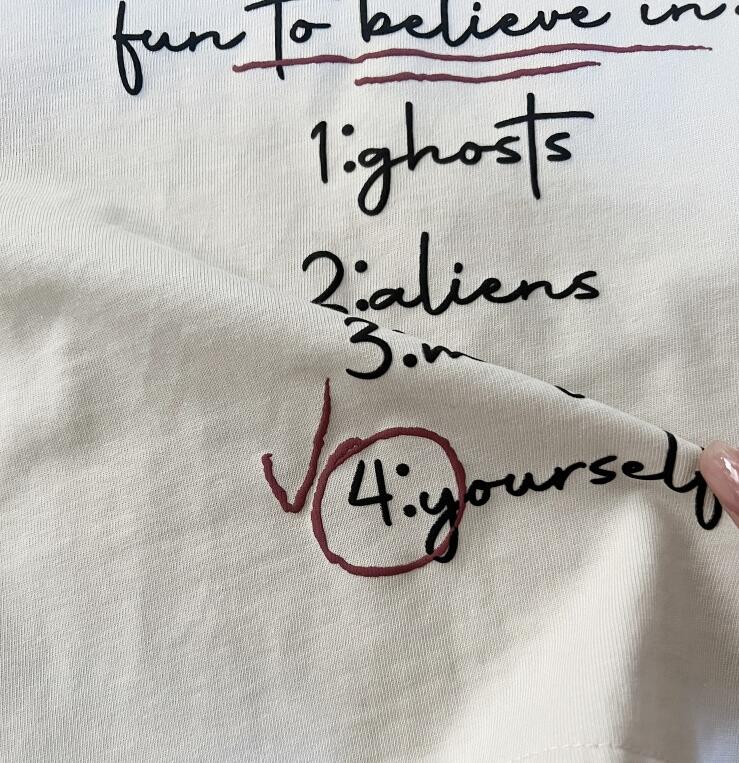 fun To believe in:
1:ghosts
2:aliens
3.m
4:yourself